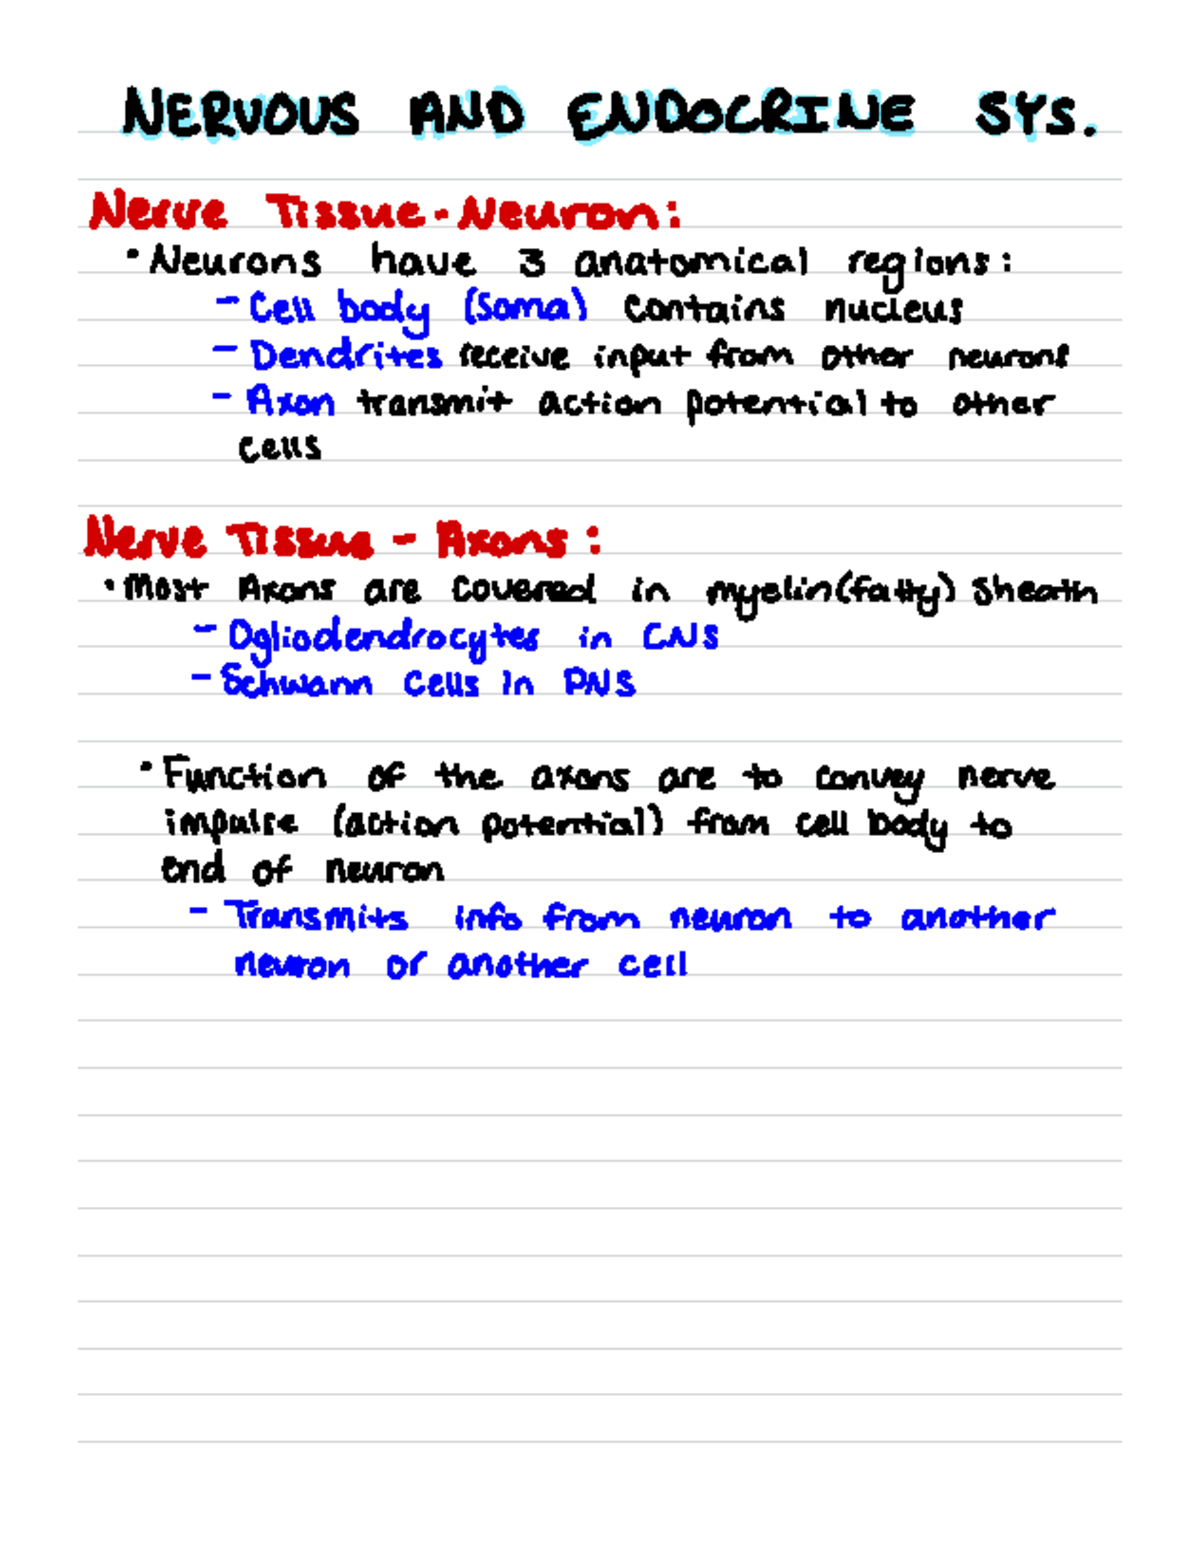 NERVOUS AND ENDOCRINE SYS.
Nerve Tissue - Neuron:
• Neurons have 3 anatomical regions:
- Cell body (soma) contains nucleus
- Dendrites receive input from other neurons
- Axon transmit action potential to other
cells
Nerve Tissue - Axons:
• Most Axons are covered in myelin (fatty) sheath
- Ogliodendrocytes in CNS
- Schwann cells in PNS
• Function of the axons are to convey nerve
impulse (action potential) from cell body to
end of neuron
- Transmits info from neuron to another
neuron or another cell